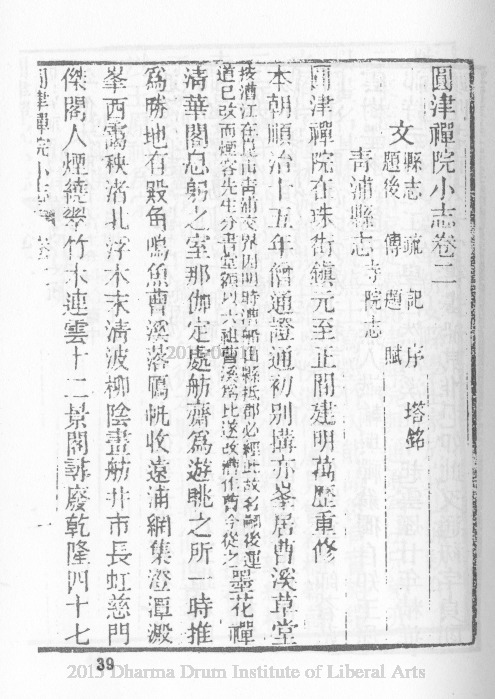 圓津禪院小志卷二
文 縣志 疏 記 序 塔銘
題後 傳 題 賦
青浦縣志 寺院志
圓津禪院在珠街鎮元至正間建明萬歷重修
本朝順治十五年僧通證通初別搆亦峯居曹溪草堂
按漕江在崑山青浦交界因明時漕船由縣抵郡必經此故名嗣後運
道已改而煙客先生分書堂額以六祖曹溪爲比遂改漕作曹今從之 墨花禪
清華閣息躬之室那伽定處舫齋爲遊眺之所一時推
爲勝地有殿角鳴魚曹溪落鴈帆收遠浦網集澄潭澱
峯西靄秧渚北浮木末清波柳陰畫舫井市長虹慈門
傑閣人煙繞翠竹木連雲十二景閣尋廢乾隆四十七
圓津禪院小志 卷二 一
39
2013 Dharma Drum Institute of Liberal Arts